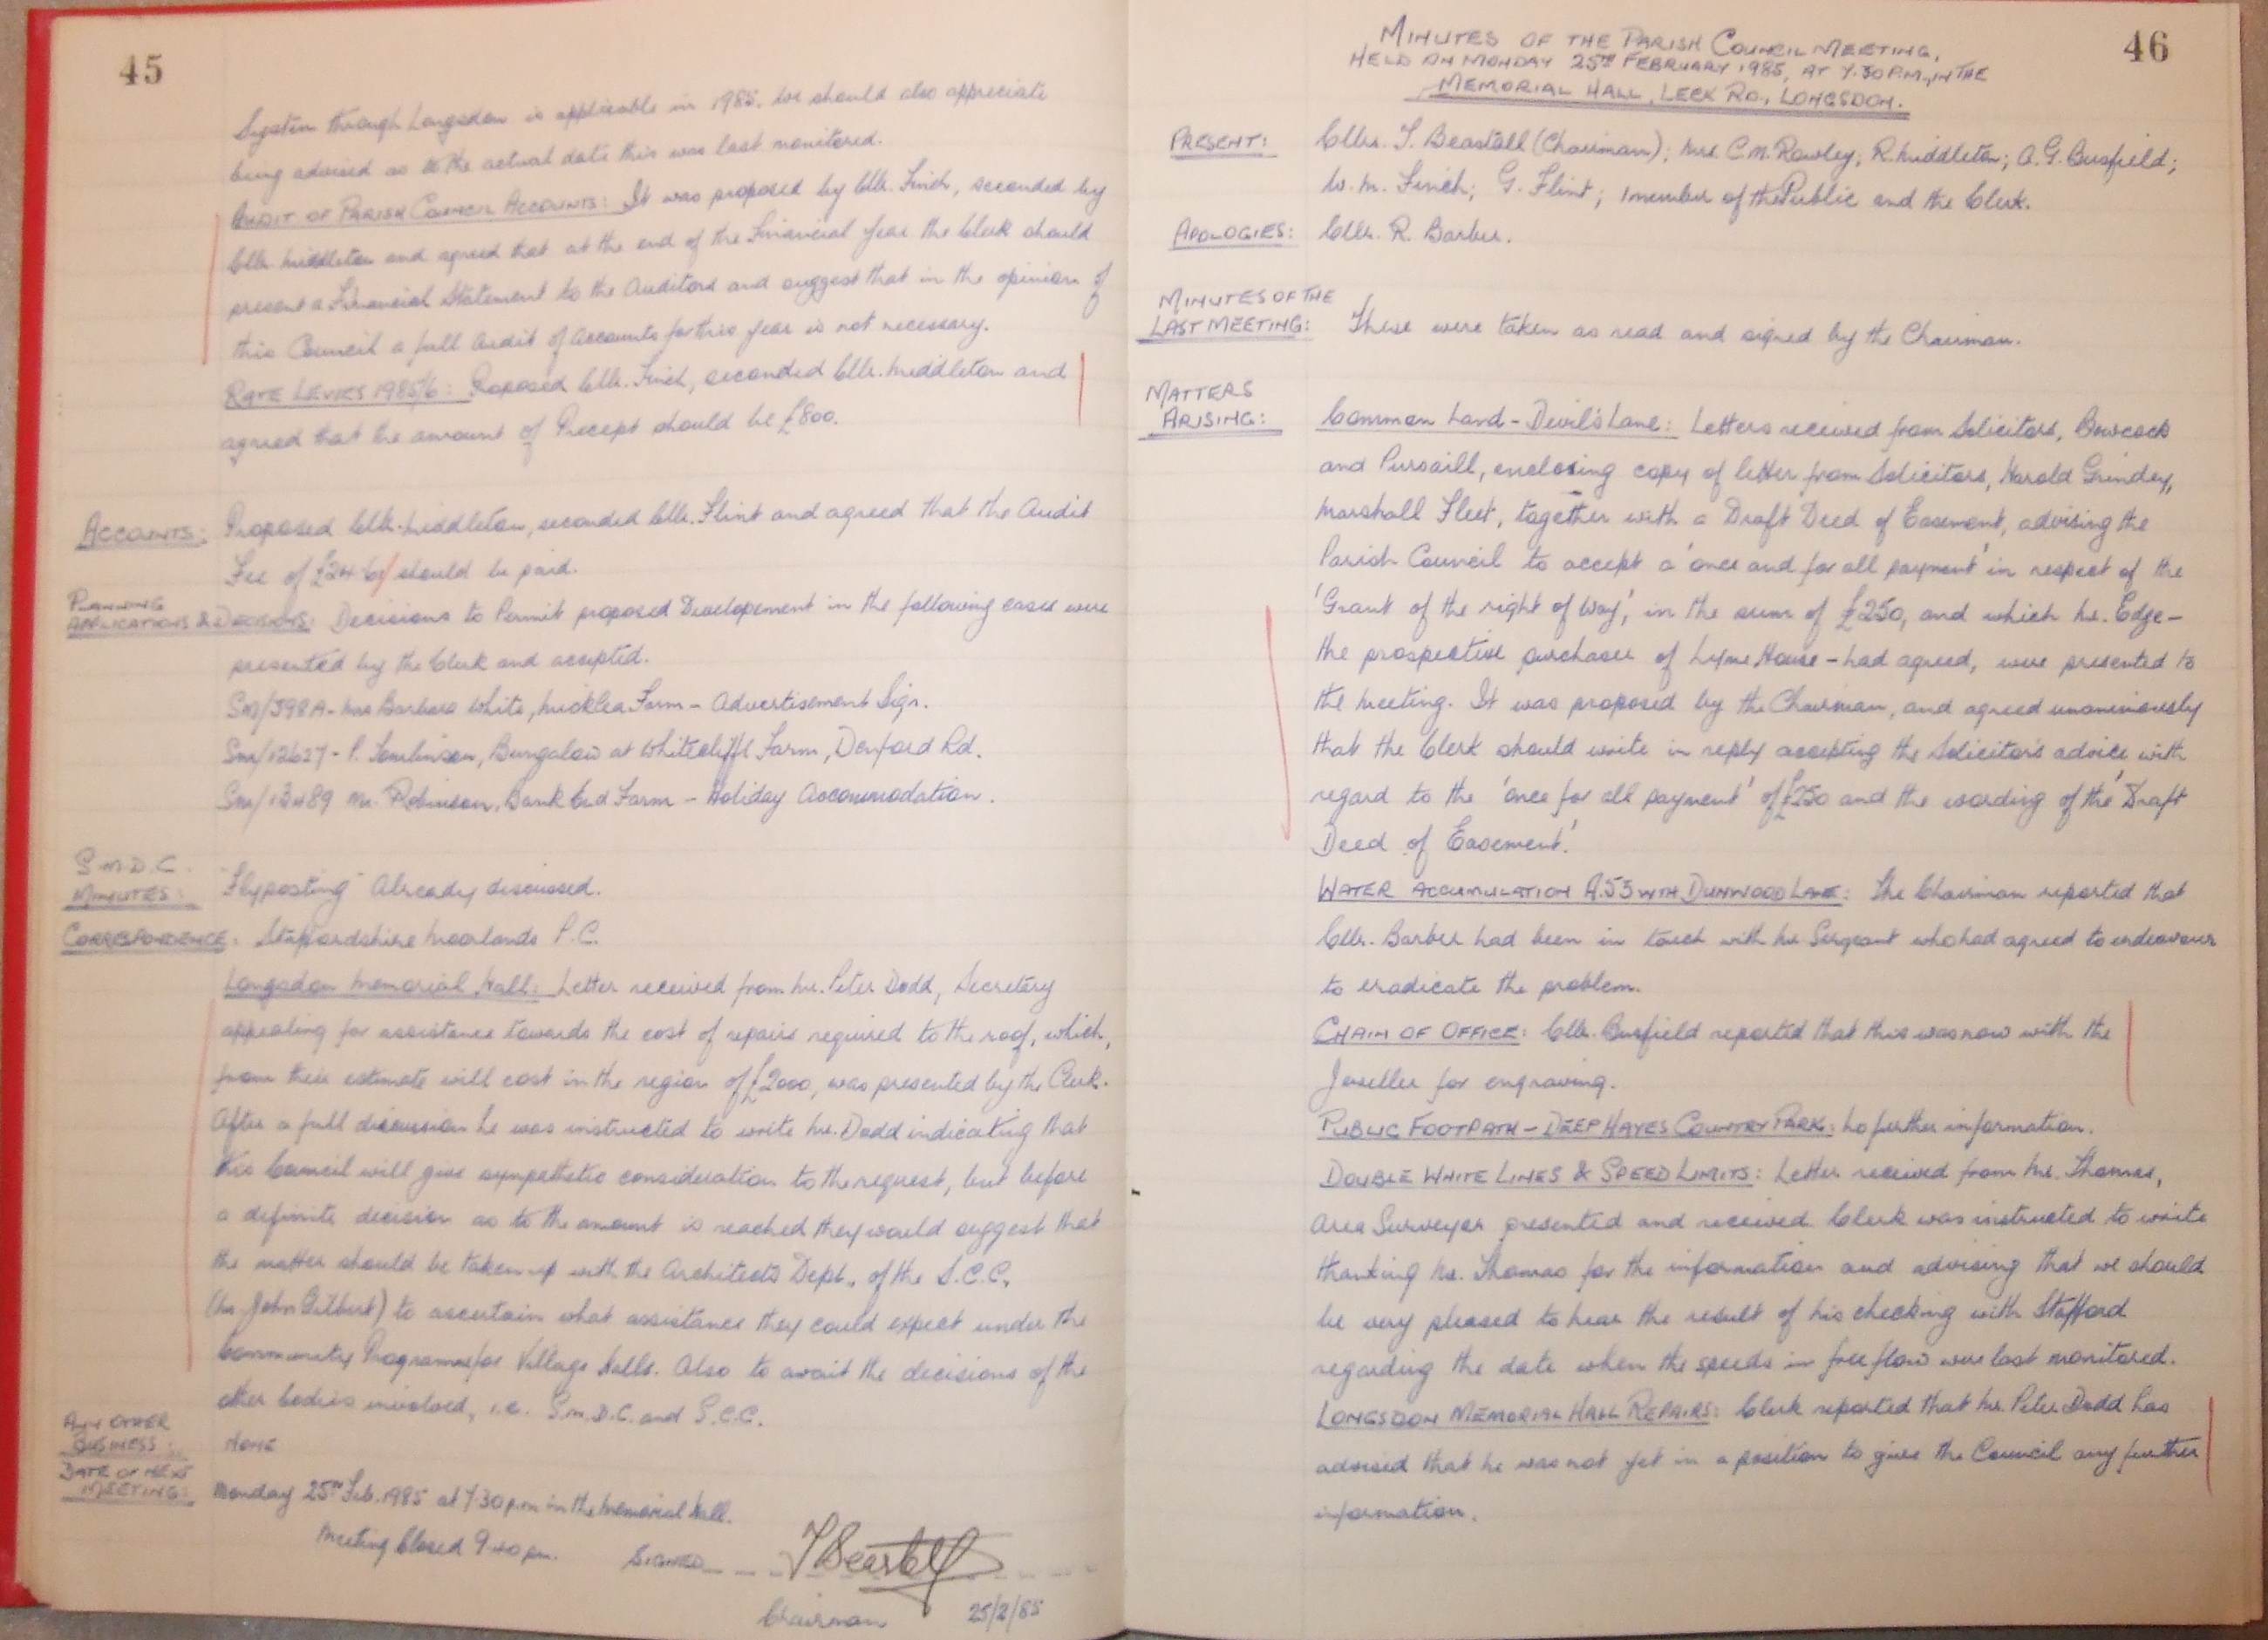 45
System through Longsdon is applicable in 1985. We should also appreciate
being advised as to the actual date this was last monitored.
AUDIT OF PARISH COUNCIL ACCOUNTS: It was proposed by Cllr. Finch, seconded by
Cllr. Middleton and agreed that at the end of the Financial Year the Clerk should
present a Financial Statement to the Auditors and suggest that in the opinion of
this Council a full Audit of Accounts for this year is not necessary.
RATE LEVIES 1985/6: Proposed Cllr. Finch, seconded Cllr. Middleton and
agreed that the amount of Precept should be £800.
ACCOUNTS: Proposed Cllr. Middleton, seconded Cllr. Flint and agreed that the Audit
Fee of £24 should be paid.
PLANNING
APPLICATIONS & DECISIONS: Decisions to Permit proposed Developement in the following cases were
presented by the Clerk and accepted.
SM/398A - Mrs Barbara White, Micklea Farm - Advertisement Sign.
SM/12627 - P. Tomlinson, Bungalow at Whitecliffe Farm, Denford Rd.
SM/13489 Mr. Robinson, Bank End Farm - Holiday Accommodation.
S.M.D.C.
MINUTES: "Flyposting" Already discussed.
CORRESPONDENCE: Staffordshire Moorlands P.C.
Longsdon Memorial Hall: Letter received from Mr. Peter Dodd, Secretary
appealing for assistance towards the cost of repairs required to the roof, which,
from their estimate will cost in the region of £2000, was presented by the Clerk.
After a full discussion he was instructed to write Mr. Dodd indicating that
this Council will give sympathetic consideration to the request, but before
a definite decision as to the amount is reached they would suggest that
the matter should be taken up with the Architects Dept., of the S.C.C.
(Mr. John Gilbert) to ascertain what assistance they could expect under the
Community Programme for Village Halls. Also to await the decisions of the
other bodies involved, i.e. S.M.D.C. and S.C.C.
ANY OTHER
BUSINESS: NONE
DATE OF NEXT
MEETING: Monday 25TH Feb. 1985 at 7.30 p.m in the Memorial Hall.
Meeting Closed 9.40 pm. SIGNED T Beastall
Chairman 25/2/85
46
MINUTES OF THE PARISH COUNCIL MEETING,
HELD ON MONDAY 25TH FEBRUARY 1985, AT 7.30 P.M., IN THE
MEMORIAL HALL, LECK RD., LONGSDON.
PRESENT: Cllrs. T. Beastall (Chairman); Mrs C.M. Rowley; R. Middleton; A.G. Busfield;
W.M. Finch; G. Flint; 1 member of the Public and the Clerk.
APOLOGIES: Cllr. R. Barber.
MINUTES OF THE
LAST MEETING: These were taken as read and signed by the Chairman.
MATTERS
ARISING: Common Land - Devil's Lane: Letters received from Solicitors, Bowcock
and Pursaill, enclosing copy of letter from Solicitors, Harold Grindey,
Marshall Fleet, together with a Draft Deed of Easement, advising the
Parish Council to accept a 'once and for all payment' in respect of the
'Grant of the right of Way', in the sum of £250, and which Mr. Edge -
the prospective purchaser of Lyme House - had agreed, were presented to
the Meeting. It was proposed by the Chairman, and agreed unanimously
that the Clerk should write in reply accepting the Solicitor's advice with
regard to the 'once for all payment' of £250 and the wording of the 'Draft
Deed of Easement.'
WATER ACCUMULATION A.53 WITH DUNWOOD LANE: The Chairman reported that
Cllr. Barber had been in touch with Mr Sergeant who had agreed to endeavour
to eradicate the problem.
CHAIN OF OFFICE: Cllr. Busfield reported that this was now with the
Jeweller for engraving.
PUBLIC FOOTPATH - DEEP HAYES COUNTRY PARK: No further information.
DOUBLE WHITE LINES & SPEED LIMITS: Letter received from Mr. Thomas,
Area Surveyor presented and received. Clerk was instructed to write
thanking Mr. Thomas for the information and advising that we should
be very pleased to hear the result of his checking with Stafford
regarding the date when the speeds in free flow were last monitored.
LONGSDON MEMORIAL HALL REPAIRS: Clerk reported that Mr. Peter Dodd has
advised that he was not yet in a position to give the Council any further
information.